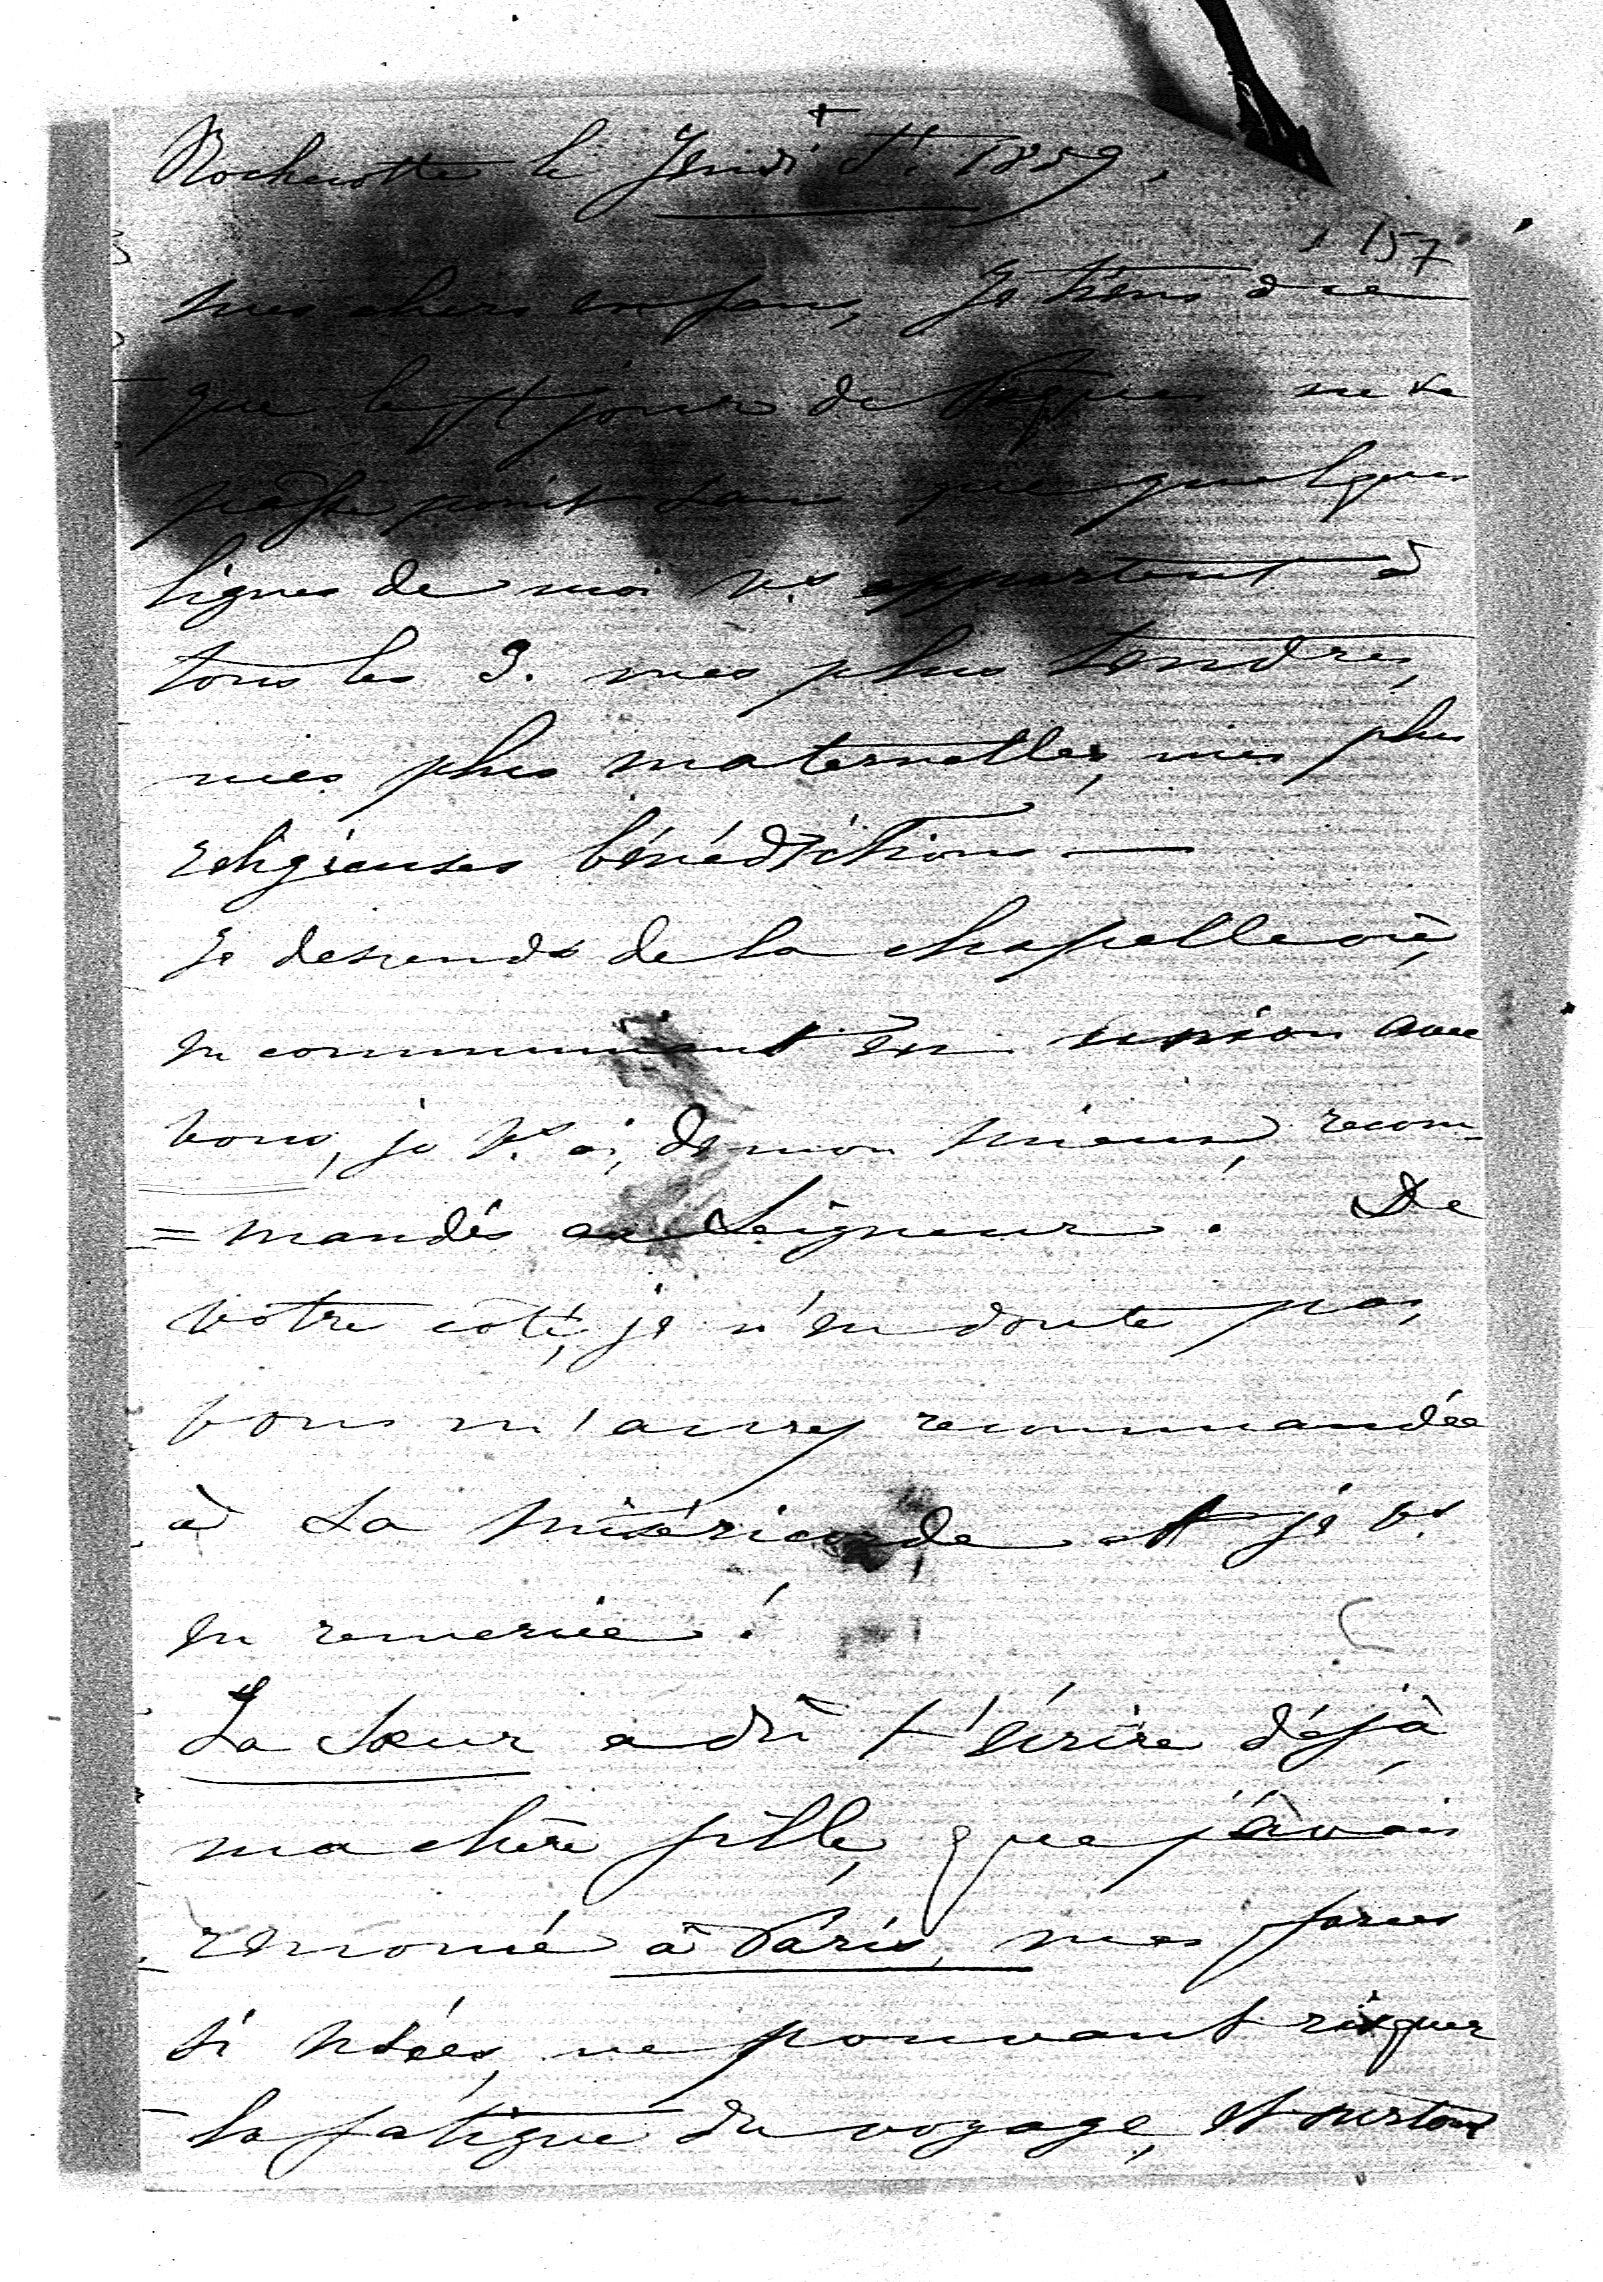 +
Rochecotte le Jeudi St. 1859.
157
mes chers enfans, Je tiens à ce
que le St jour de Pâques ne se
passe point sans que quelques
lignes de moi vs apportent à
tous les 3. mes plus tendres,
mes plus maternelles, mes plus
religieuses bénédictions —
Je descends de la chapelle où,
en communiant en union avec
vous, je vs ai, de mon mieux, recom-
=mandés au Seigneur. De
votre côté, je n'en doute pas,
vous m'aurez recommandée
à Sa miséricorde et je vs
en remercie!
La Sœur a dû t'écrire déjà
ma chère fille, que j'avais
renoncé à Paris, mes forces
si usées, ne pouvant risquer
la fatigue du voyage, et surtout